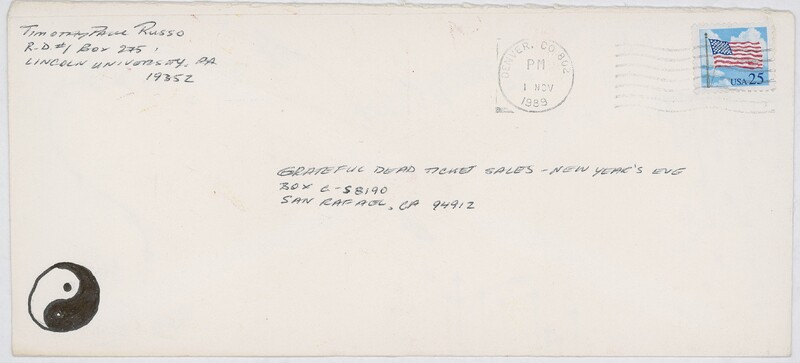 Timothy Paul Russo
R.D.#1 Box 275,
Lincoln University, PA
19352
DENVER, CO 802
PM
1 NOV
1989
USA 25
GRATEFUL DEAD TICKET SALES - NEW YEAR'S EVE
BOX C-S8190
SAN RAFAEL, CA 94912